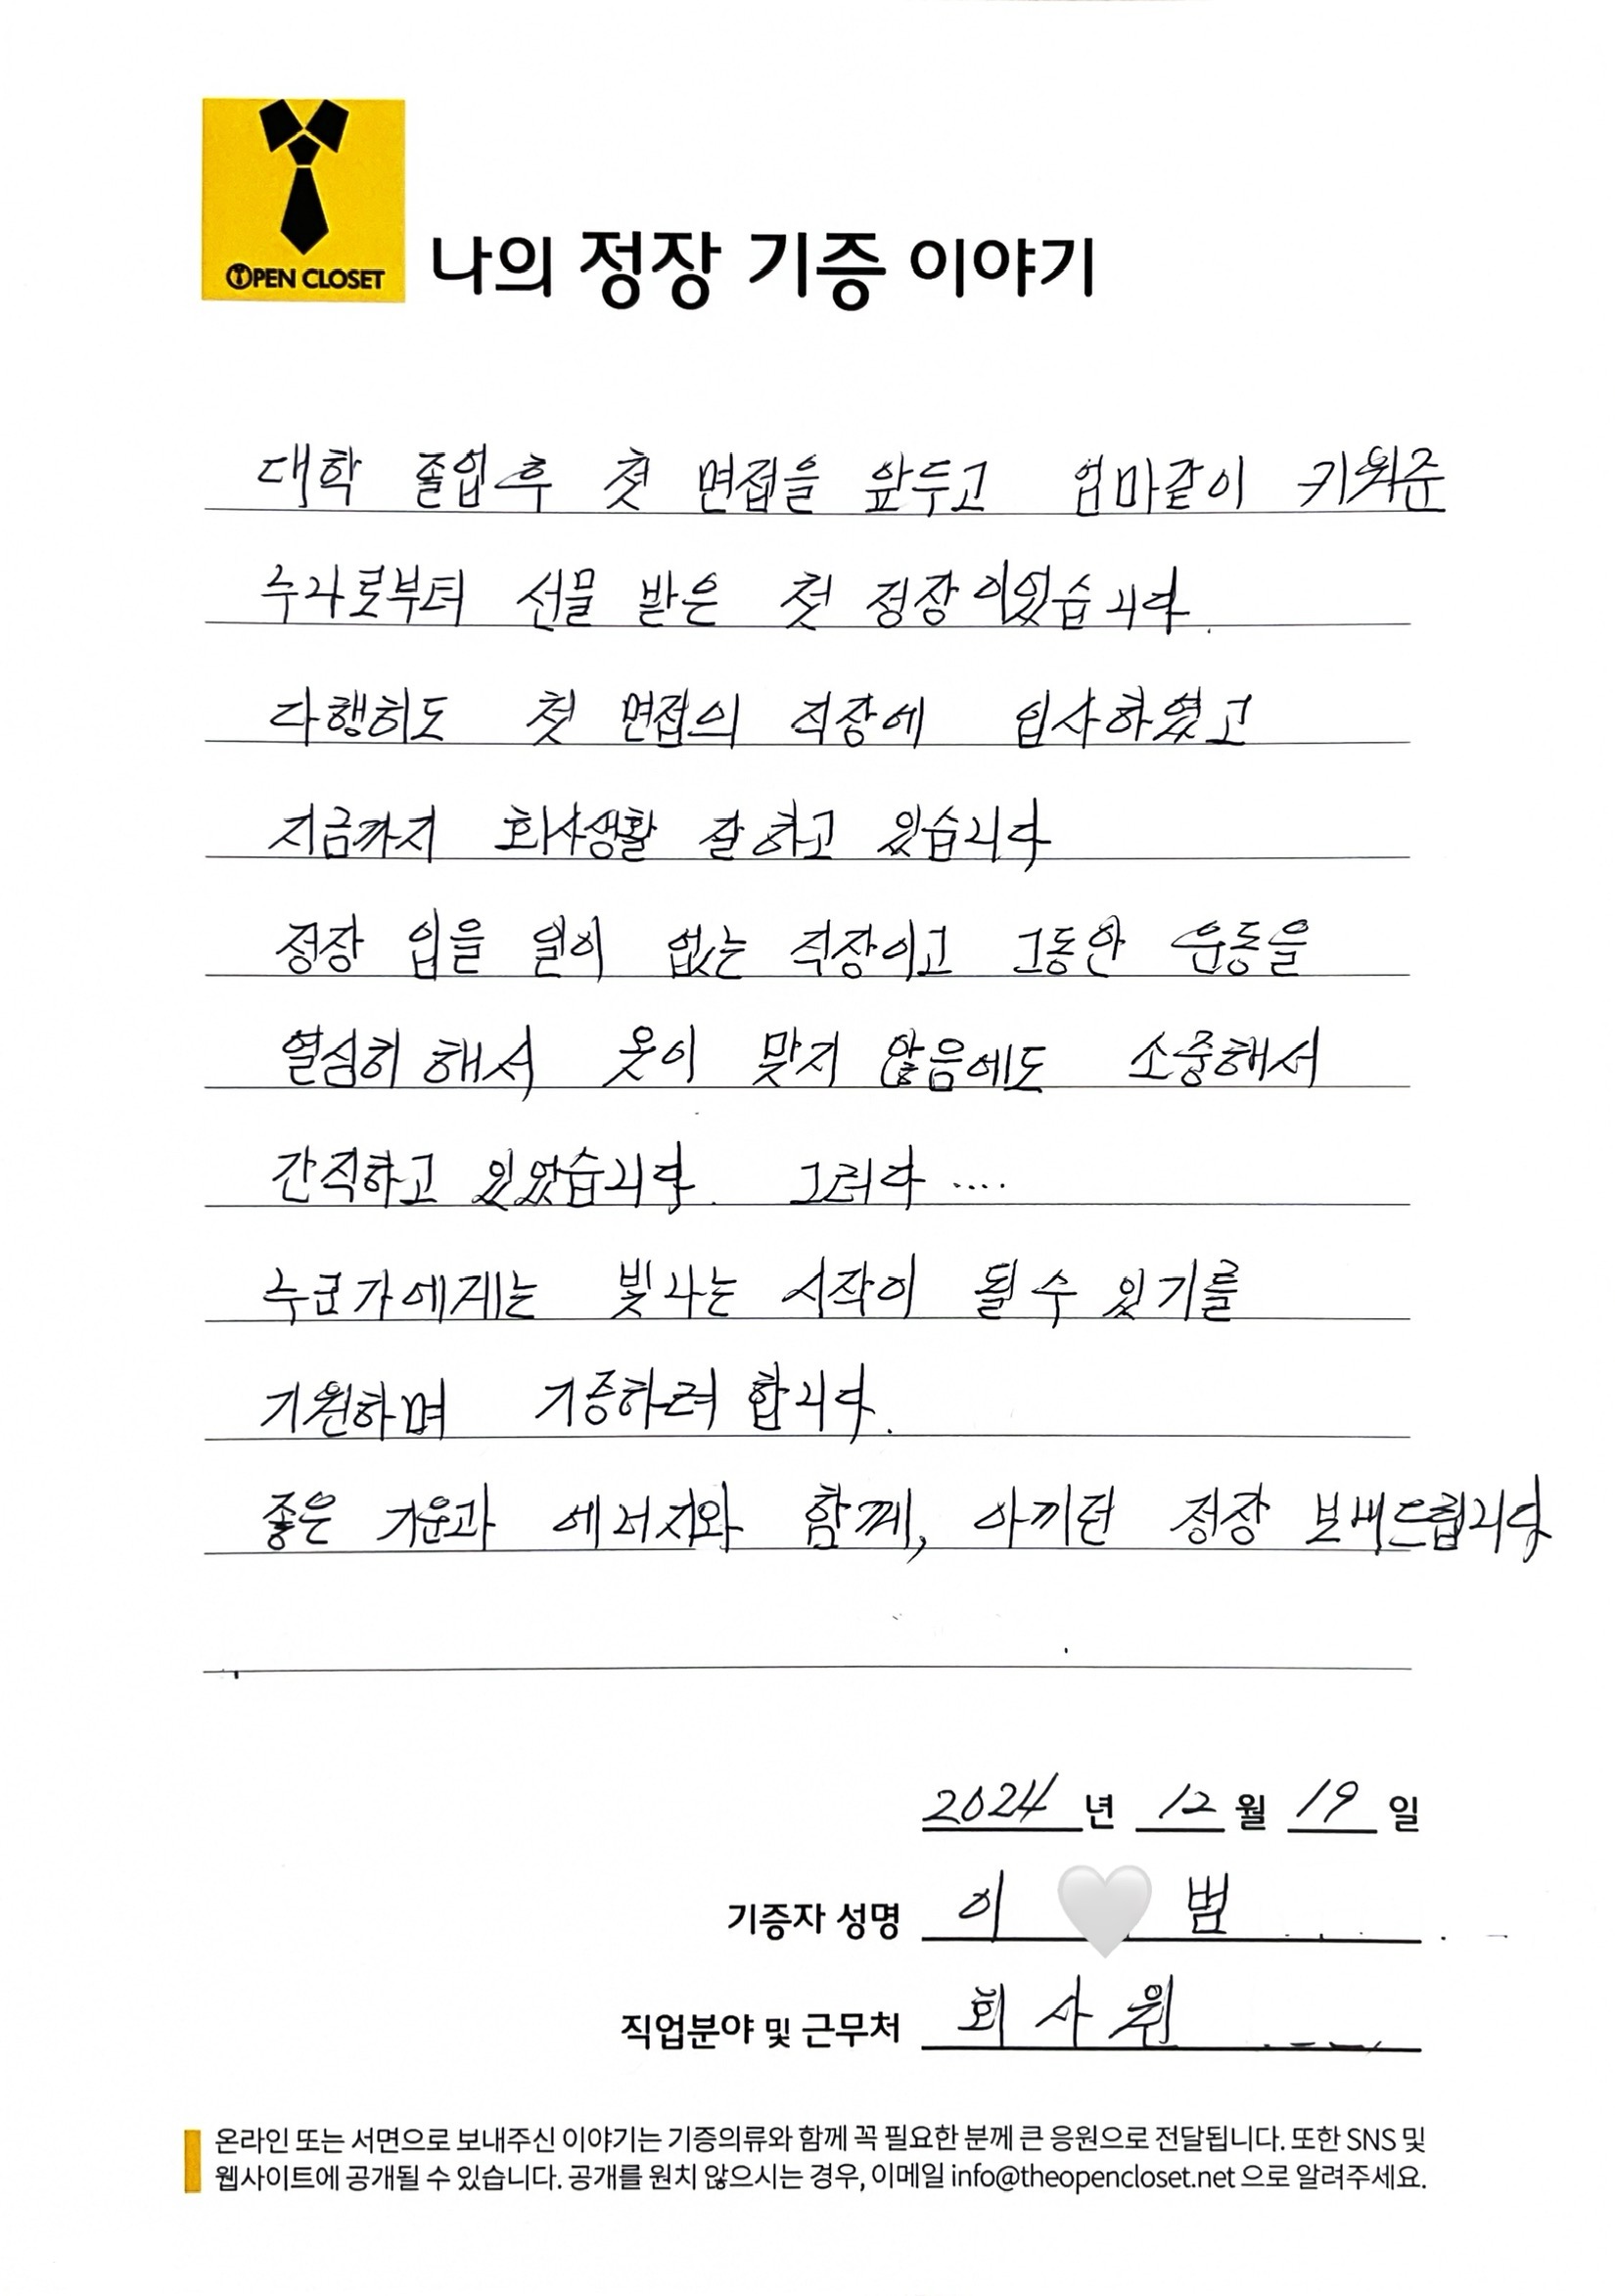 OPEN CLOSET
나의 정장 기증 이야기
대학 졸업 후 첫 면접을 앞두고 엄마같이 키워준
누나로부터 선물 받은 첫 정장이었습니다.
다행히도 첫 면접의 직장에 입사하였고
지금까지 회사생활 잘 하고 있습니다
정장 입을 일이 없는 직장이고 그동안 운동을
열심히 해서 옷이 맞지 않음에도 소중해서
간직하고 있었습니다. 그러다 ....
누군가에게는 빛나는 시작이 될 수 있기를
기원하며 기증하려 합니다.
좋은 기운과 에너지와 함께, 아끼던 정장 보내드립니다
2024 년 12 월 19 일
기증자 성명 이 범
직업분야 및 근무처 회사원
온라인 또는 서면으로 보내주신 이야기는 기증의류와 함께 꼭 필요한 분께 큰 응원으로 전달됩니다. 또한 SNS 및
웹사이트에 공개될 수 있습니다. 공개를 원치 않으시는 경우, 이메일 info@theopencloset.net 으로 알려주세요.